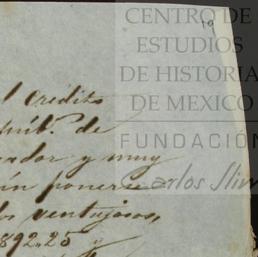 CENTRO DE
ESTUDIOS
DE HISTORIA
DE MEXICO
FUNDACIÓN
Carlos Slim
l credito
de
ador y muy
ponerse
los ventajosos,
892.25 y